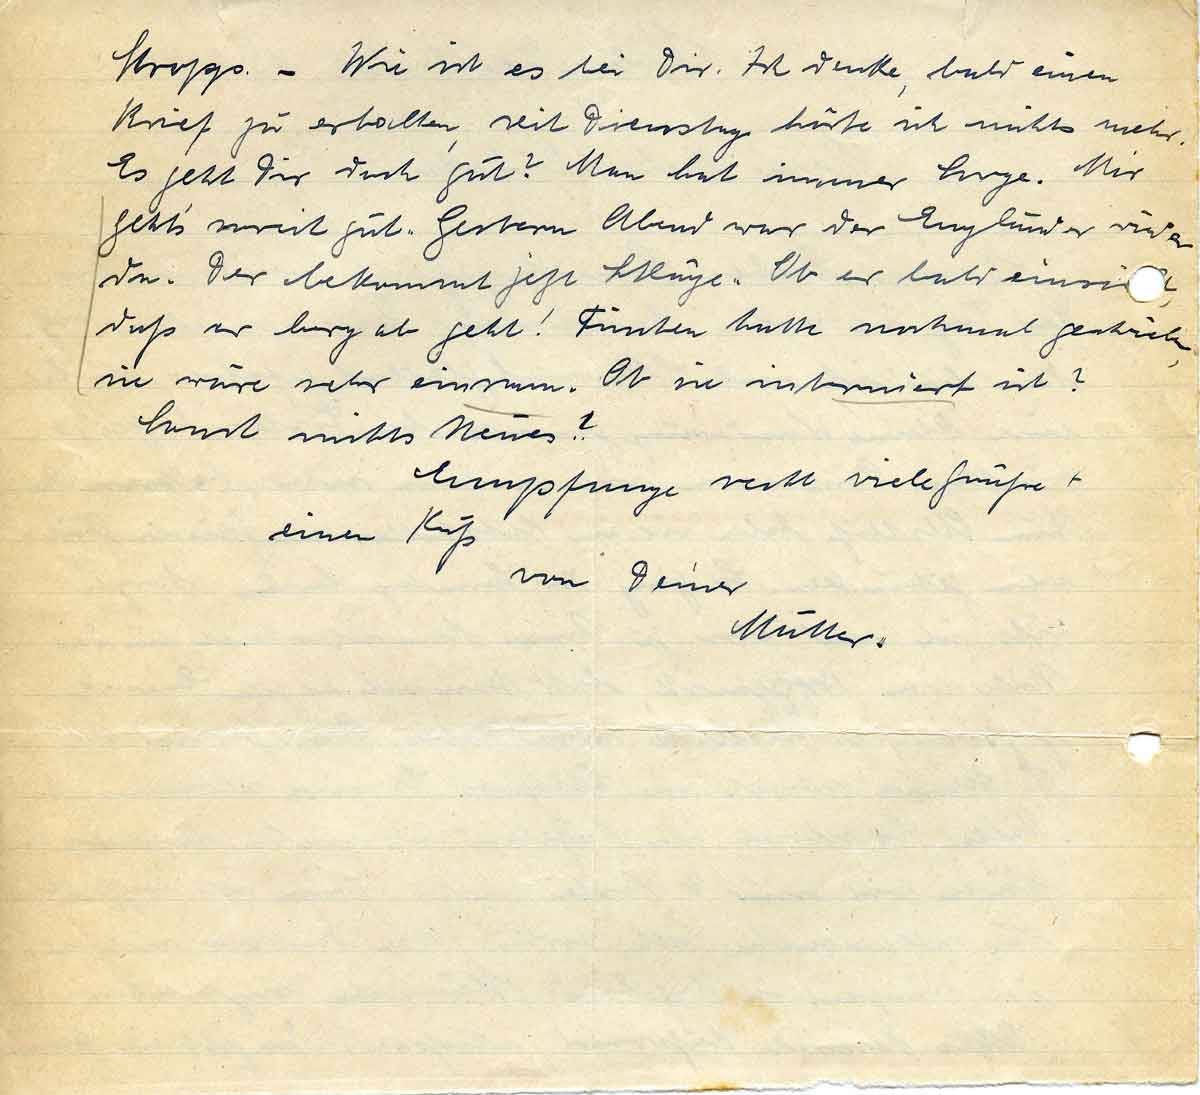 Stropps. – Wie ist es bei Dir. Ich denke, bald einen
Brief zu erhalten, seit Dienstag hörte ich nichts mehr.
Es geht Dir doch gut? Man hat immer Sorge. Mir
geht's soweit gut. Gestern Abend war der Engländer wieder
da. Der bekommt jetzt Schläge. Ob er bald einsieht,
daß er bergab geht! hatte nochmal geschrieben,
sie wäre sehr einsam. Ob sie interniert ist?
Sonst nichts Neues?
Empfange recht viele Grüße +
einen Kuß
von Deiner
Mutter.